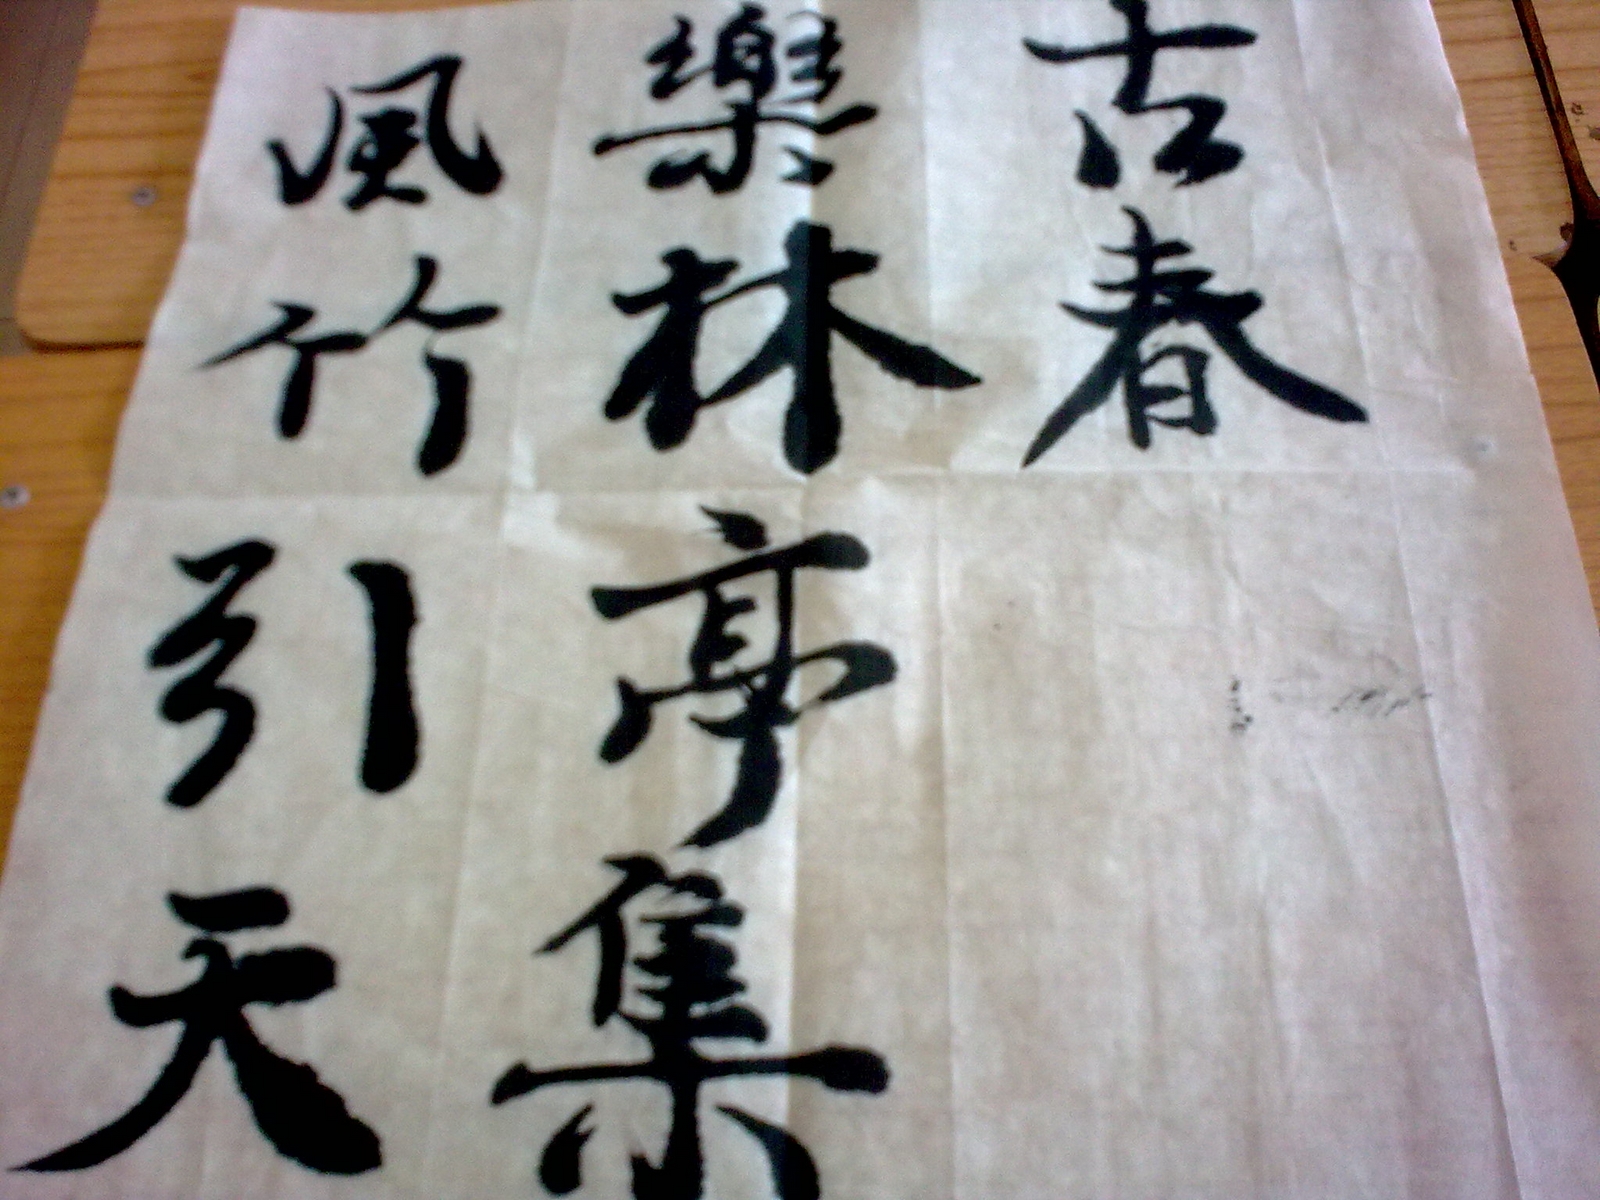 風竹引天
樂林亭集
古春